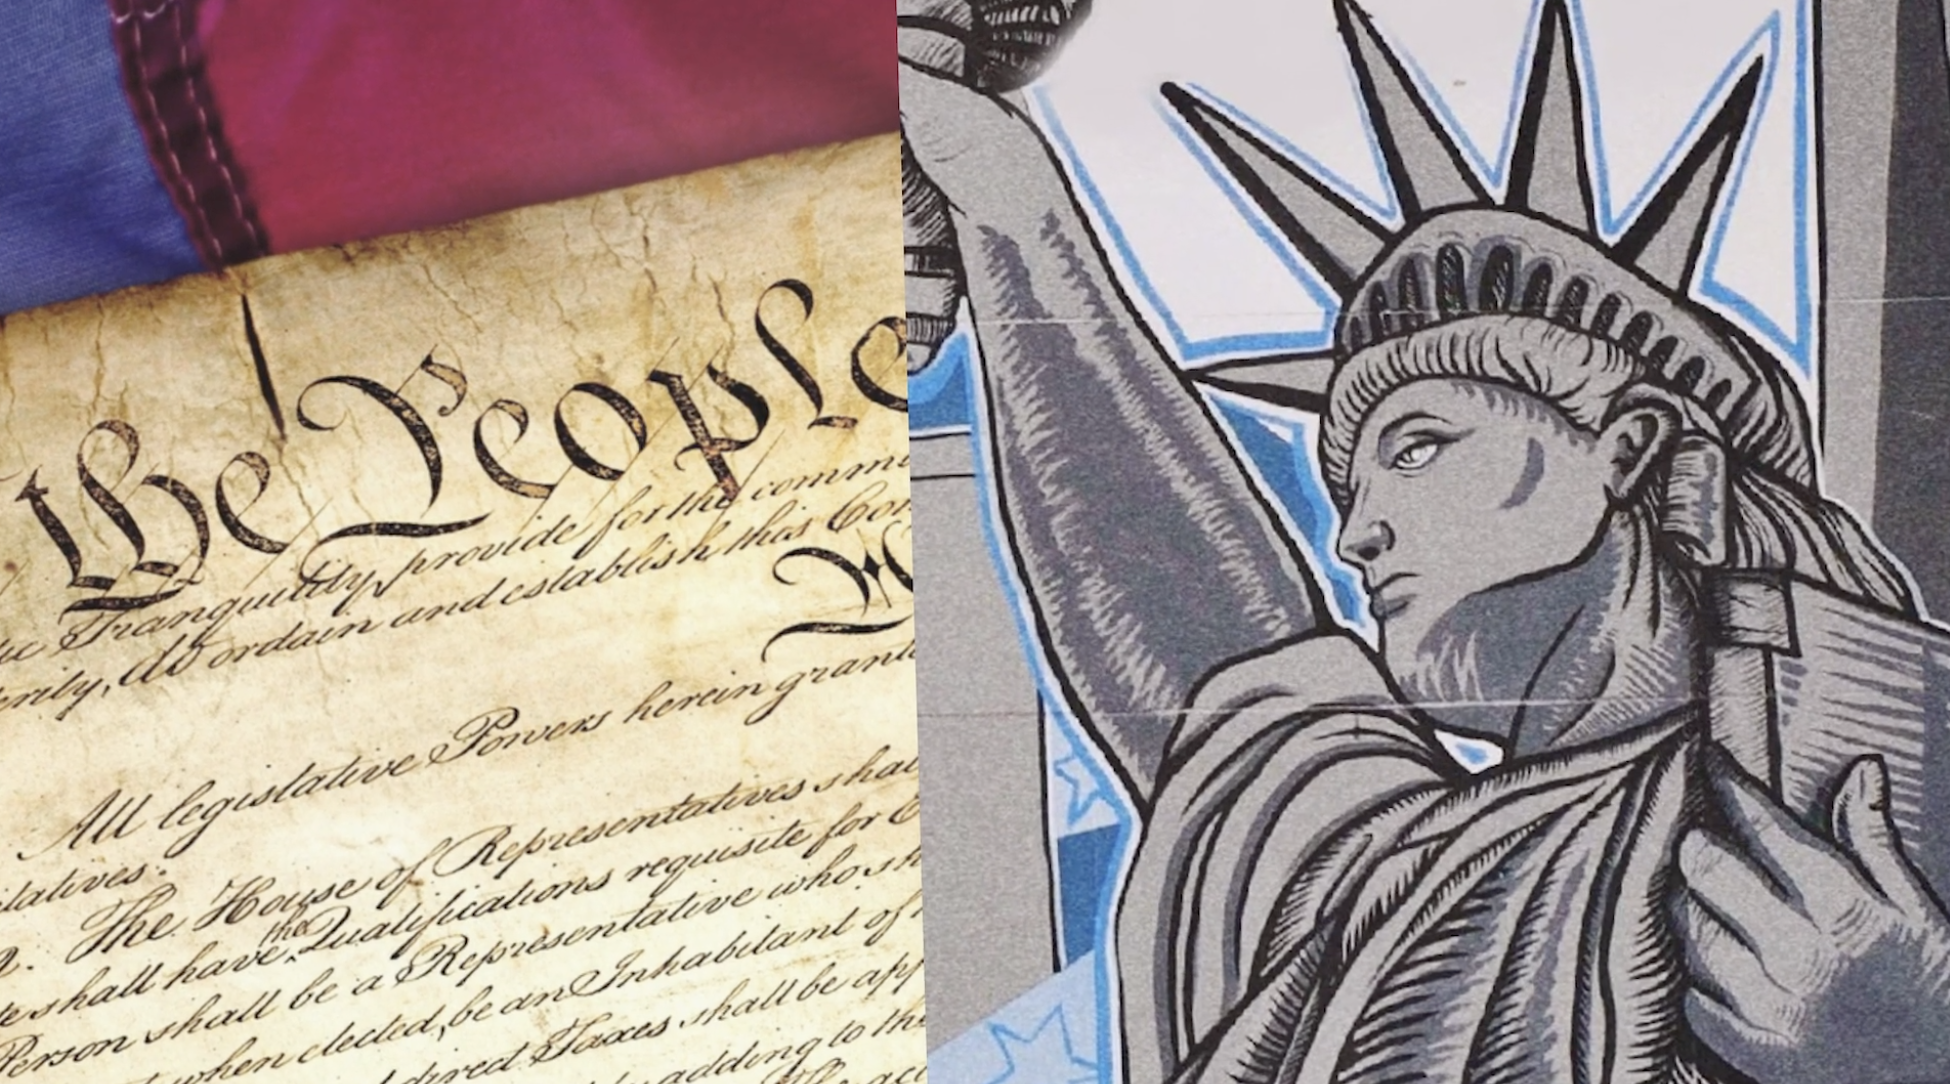 the People
Tranquility, provide for the comm
erity, do ordain and establish this Con
All legislative Powers herein grant
tatives.
The House of Representatives shal
e shall have the Qualifications requisite for
Person shall be a Representative who sh
when elected, be an Inhabitant of
direct Taxes shall be app
adding to the